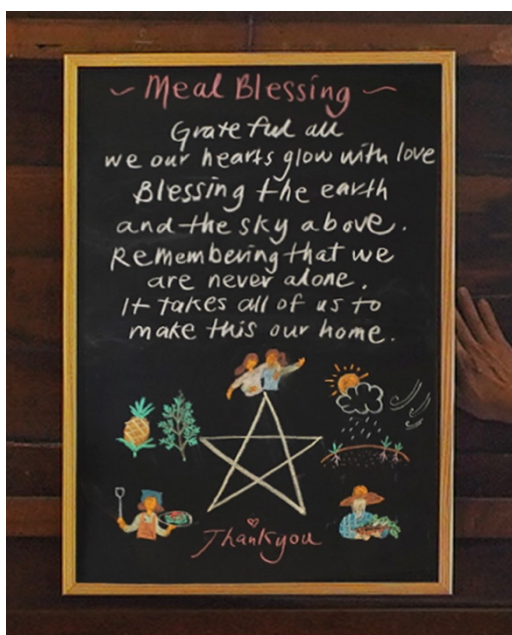 ~ Meal Blessing ~
Grateful all
we our hearts glow with love
Blessing the earth
and the sky above.
Remembering that we
are never alone.
It takes all of us to
make this our home.
Thankyou